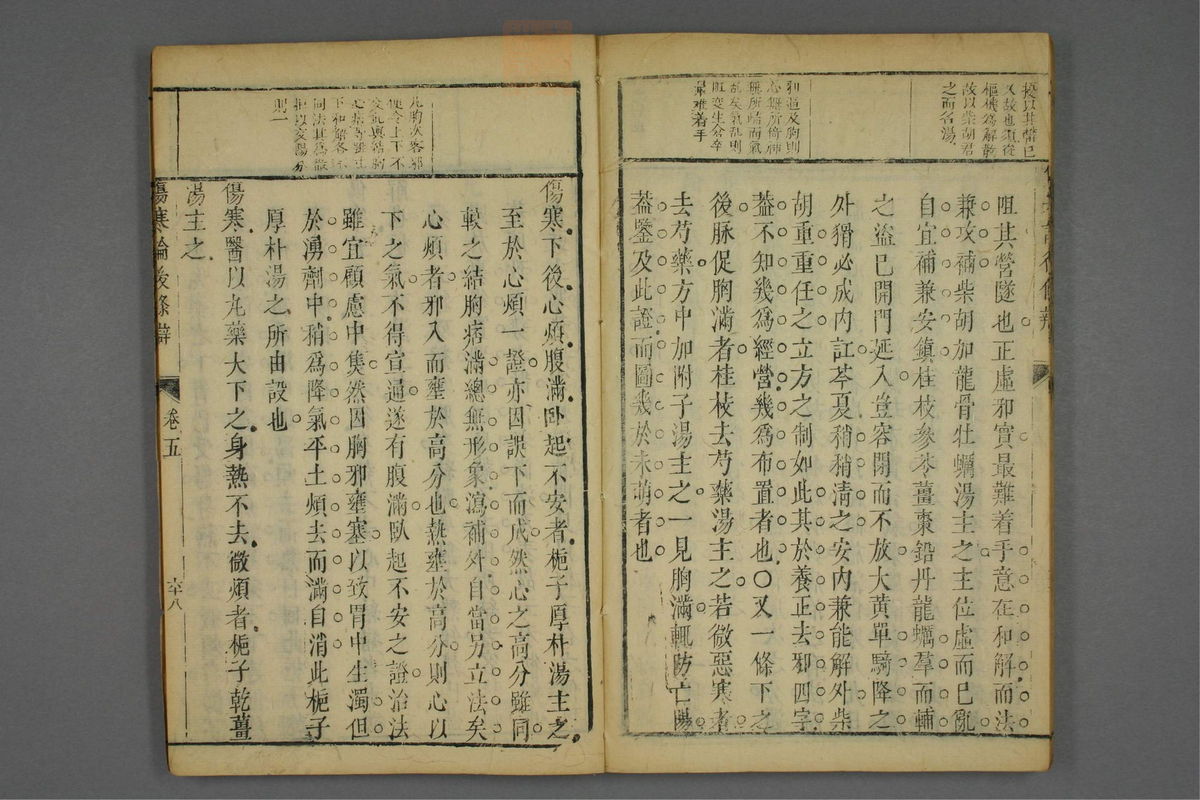 擾以其滯已
又故也須從
樞機為解散
故以柴胡君
之而名湯
邪逼及胸則
心無所倚神
無所歸而氣
亂矣氣亂則
脏变生倉卒
最难着手
阻其營隧也正虛邪實最難着手意在和解而法
兼攻補柴胡加龍骨牡蠣湯主之主位虛而已亂
自宜補兼安鎮桂枝參苓薑棗鉛丹龍蠣羣而輔
之盜已開門延入豈容閉而不放大黃單騎降之
外猾必成內訌芩夏稍稍清之安內兼能解外柴
胡重重任之立方之制如此其於養正去邪四字
葢不知幾為經營幾為布置者也○又一條下之
後脉促胸滿者桂枝去芍藥湯主之若微惡寒者
去芍藥方中加附子湯主之一見胸滿輒防亡陽
葢鑒及此證而圖幾於未萌者也
凡胸次客邪
使令上下不
交記與結胸
心煩等雖上
下和觧各不
同法其為散
拒以交陽分
則一
傷寒下後心煩腹滿臥起不安者梔子厚朴湯主之
至於心煩一證亦因誤下而成然心之高分雖同
較之結胸痞滿總無形象瀉補外自當另立法矣
心煩者邪入而壅於高分也熱壅於高分則心以
下之氣不得宣通遂有腹滿臥起不安之證治法
雖宜顧慮中焦然因胸邪壅塞以致胃中生濁但
於湧劑中稍為降氣平土煩去而滿自消此梔子
厚朴湯之所由設也
傷寒醫以丸藥大下之身熱不去微煩者梔子乾薑
湯主之
傷寒論後條辯
卷五
六十八